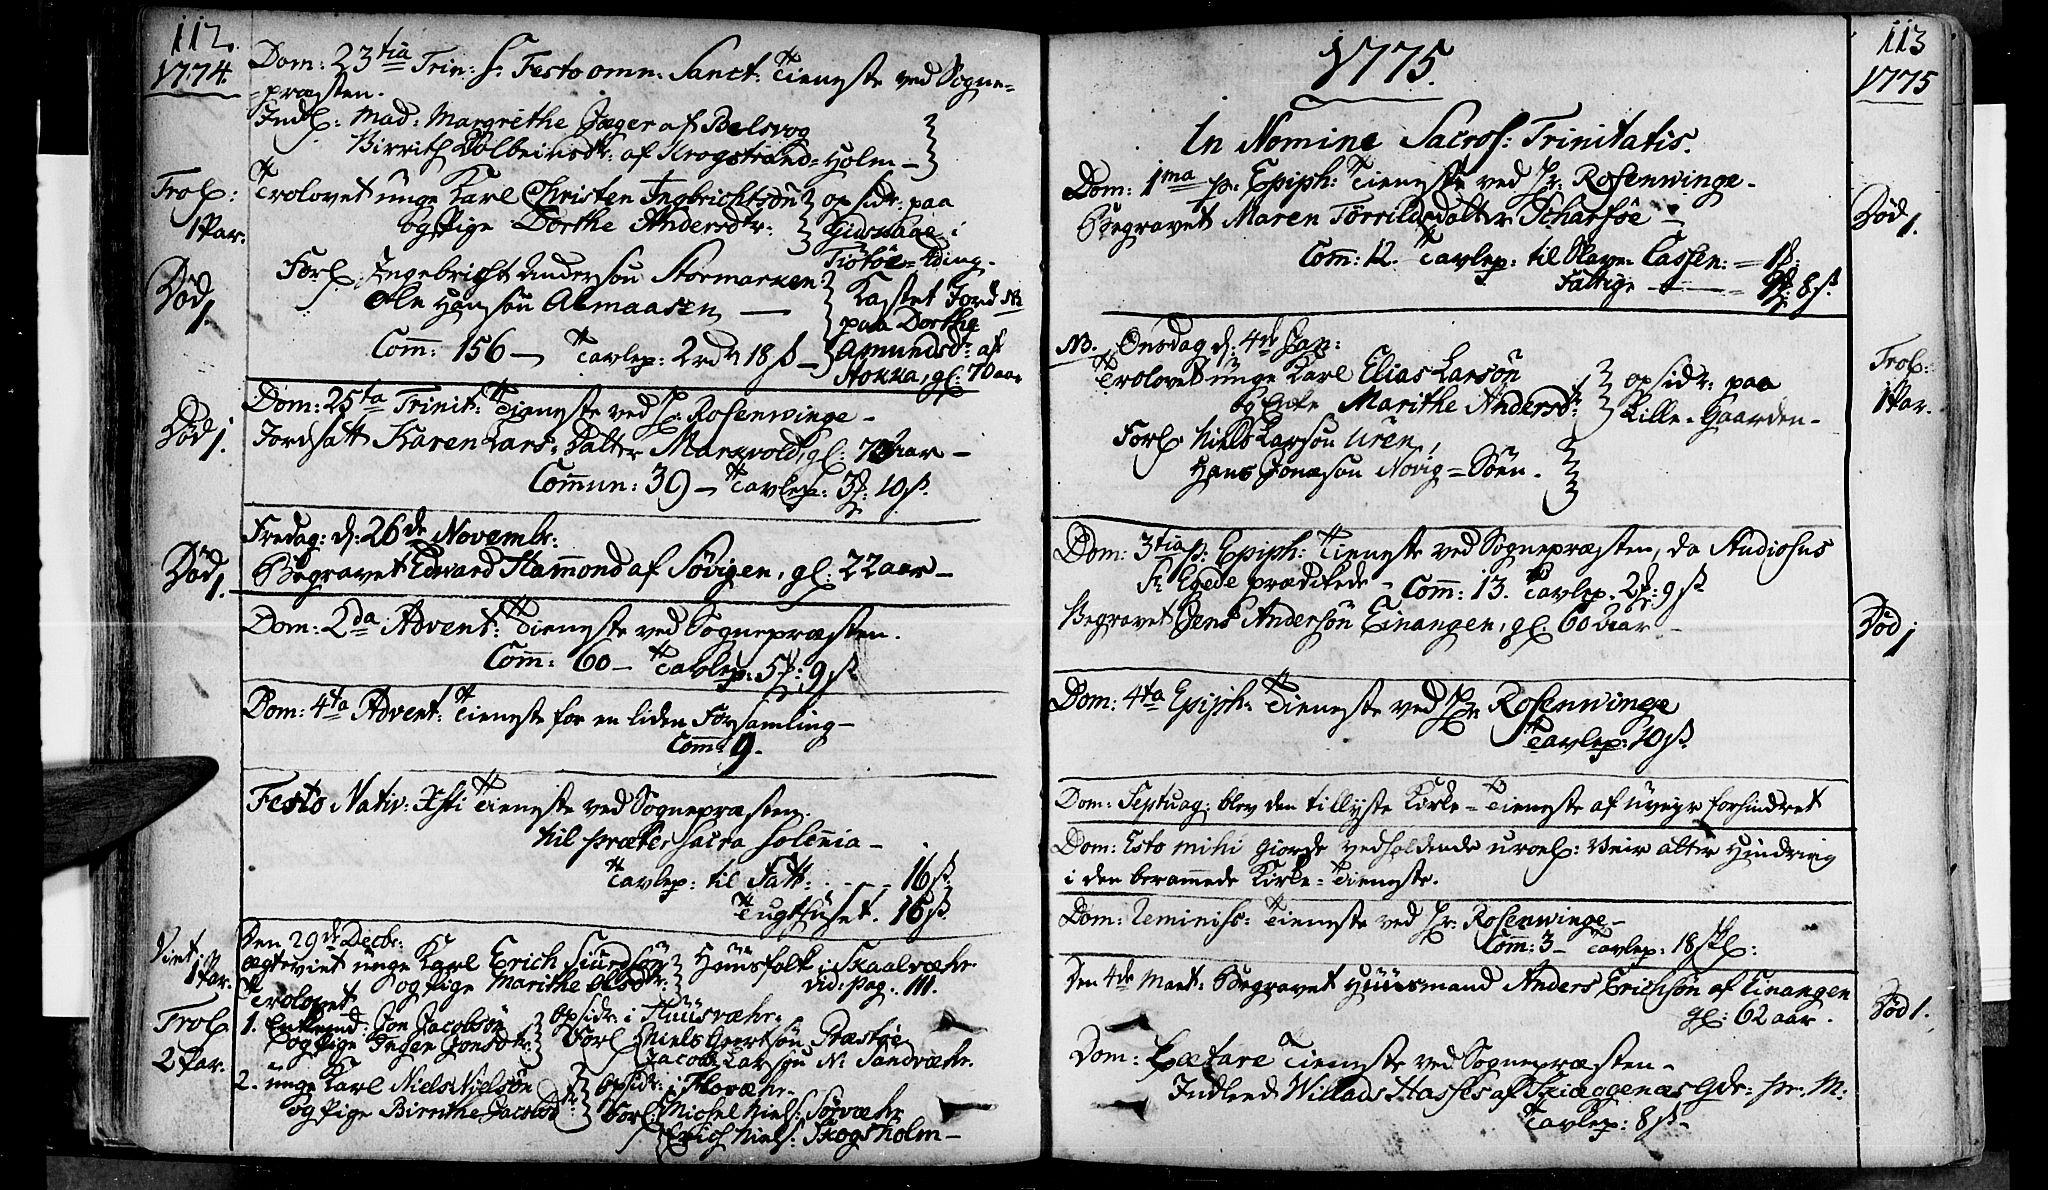 112.
1774.
Dom: 23tia Trin: s: Festo omn: Sanct: Tieneste ved Sogne=
=præsten.
Indl: Mad: Margrethe Jæger af Belsvog
Birrith Kolbeinsdr: af Krogstrand=Holm –
Trol:
1 Par.
Trolovet unge Karl Christen Ingbrichtsøn
og Pige Dorthe Andersdtr:
opsidr: paa
i
Tiøtøe=Ting.
Død
1.
Forl: Ingebricht Andersøn Stormarken
Ole Hansøn Almaasen –
Kastet Jord
paa Dorthe
Amundsdr: af
Stokka, gl: 70 aar
Comm: 156 – Tavlep: 2rd 18 s –
Død 1
Dom: 25ta Trinit: Tieneste ved Hr: Rosenwinge –
Jordsatt Karen Lars=Datter Markvold, gl: aar –
Commun: 39 – Tavlep: 3: 10 s.
Død
1.
Fredag: d: 26de Novembr:
Begravet Edward Hammond af Søvigen, gl: 22 aar –
Dom: 2da Advent: Tieneste ved Sognepræsten.
Comm: 60 – Tavlep: 5: 9 s
Dom: 4ta Advent: Tieneste for en liden Forsamling –
Comm: 9 –
Festo Nativ: Xsti Tieneste ved Sognepræsten.
Nil præter sacra solennia –
Tavlep: til Fatt: – – – 16 s.
Tugthuset. 16 s
Viet
1 Par.
Den 29de Decbr:
ægteviet unge Karl Erich Siurdsøn
og Pige Marithe Olsdr:
Huusfolk i Skaalvæhr.
vid: pag: 111.
Trolovet
Trol
2 Par.
1. Enkemd: Jon Jacobsøn
og Pige Inger Jonsdtr:
opsidr: i Huusvæhr.
Forl: Niels Geertsøn Præstøe
Jacob Larsøn N: Sandvæhr.
2. unge Karl Niels Nielsøn
og Pige Birrithe Jacobsd:
opsidr: i Flovæhr.
Forl: Michel Niels: Sørvæhr
Erich Niels: Skogsholm –
113
1775
1775.
In Nomine Sacros: Trinitatis.
Dom: 1ma p: Epiph: Tieneste ved Hr: Rosenwinge –
Død
1.
Begravet Maren Torrilsdatter Scharsøe –
Comm: 12. Tavlep: til Slave-Cassen: =
Fattige – 8 s.
NB. Onsdag d: 4de Jan:
Trol:
1 Par.
Trolovet unge Karl Elias Larsøn
og Enke Marithe Andersd:
opsidr: paa
Lille-Gaarden –
Forl: Niels Larsøn Uren,
Hans Jonasøn Novig=Søen.
Dom: 3tia p: Epiph: Tieneste ved Sognepræsten, da Studiosus
Hr: Egede prædikede – Comm: 13. Tavlep. 2: 9 s
Død 1
Begravet Jens Andersøn Einangen, gl: 60 aar –
Dom: 4ta Epiph: Tieneste ved Hr: Rosenwinge
Tavlep: 10 s.
Dom: Septuag: blev den tillyste Kirke=Tieneste af uveyr forhindret
Dom: Esto mihi giorde vedholdende uroel: Veir atter Hindring
i den berammede Kirke=Tieneste.
Dom: Reminisc: Tieneste ved Hr: Rosenwinge –
Comm: 3 – Tavlep: 18 skl:
Død 1.
Den 4de Mart: Begravet Huusmand Anders Erichsøn af Einangen
gl: 62 aar.
Dom: Lætare Tieneste ved Sognepræsten –
Indleed: Willads Hasses af Skiæggenæs Gdr: pr: M:
Tavlep: 8 s –